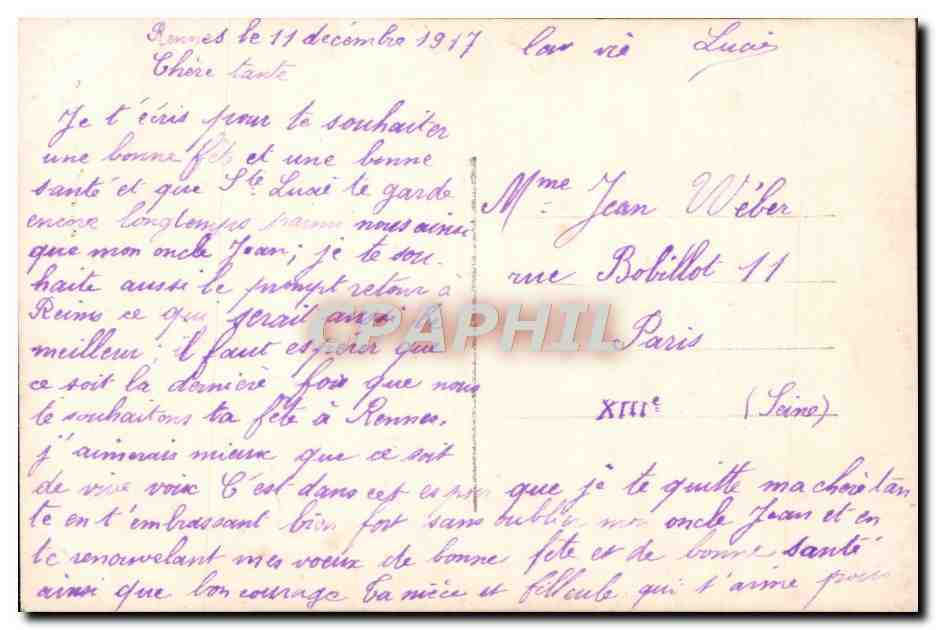 Rennes le 11 décembre 1917
Chère tante
Je t'écris pour te souhaiter
une bonne fête et une bonne
santé et que Ste Lucie te garde
encore longtemps parmi nous ainsi
que mon oncle Jean; je te sou-
haite aussi le prompt retour à
Reims ce qui serait aussi le
meilleur; il faut espérer que
ce soit la dernière fois que nous
te souhaitons ta fête à Rennes.
j'aimerais mieux que ce soit
de vive voix C'est dans cet espoir que je te quitte ma chère tan
te en t'embrassant bien fort sans oublier mon oncle Jean et en
te renouvelant mes voeux de bonne fête et de bonne santé
ainsi que bon courage Ta nièce et filleule qui t'aime pour
la vie Lucie
Mme Jean Wéber
rue Bobillot 11
Paris
XIIIe (Seine)
CPAPHIL